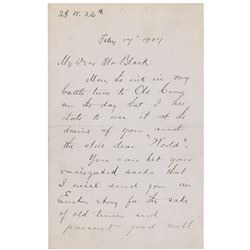 28 W. 26th
Feby 14' 1907
My Dear Mr Black.
May the ink in my
battle turn to Old Crow
on the day that I hes-
itate to use it at the
desire of you and
the still dear "World".
You can bet your
variegated socks that
I will send you an
Easter story for the sake
of old times and
present good will